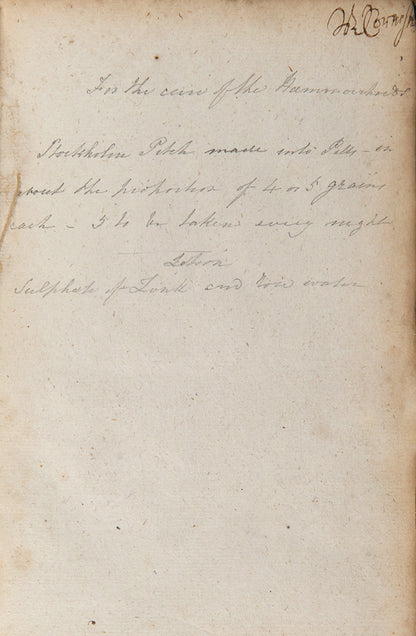 For the cure of the Haemorrhoids
Stockholm Pitch made into Pills - in
about the proportion of 4 or 5 grains
each - 3 to be taken every night
Lotion
Sulphate of Zink and rose water